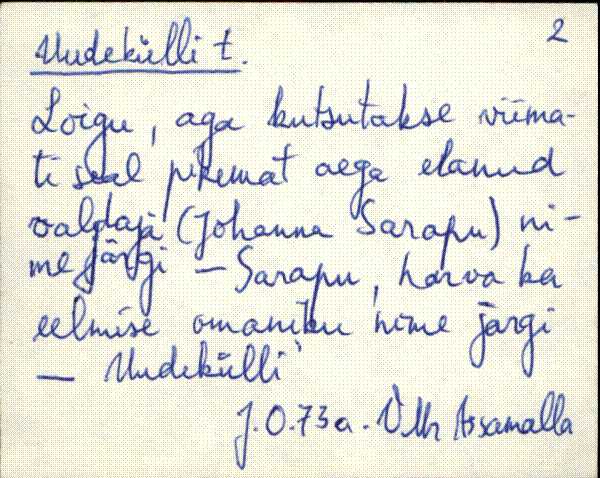 2
Uudekülli t.
Loigu, aga kutsutakse viima-
ti seal pikemat aega elanud
valdaja (Johanna Sarapu) ni-
me järgi – Sarapu, harva ka
eelmise omaniku nime järgi
– Uudekülli
J. O. 73 a. VMr Assamalla